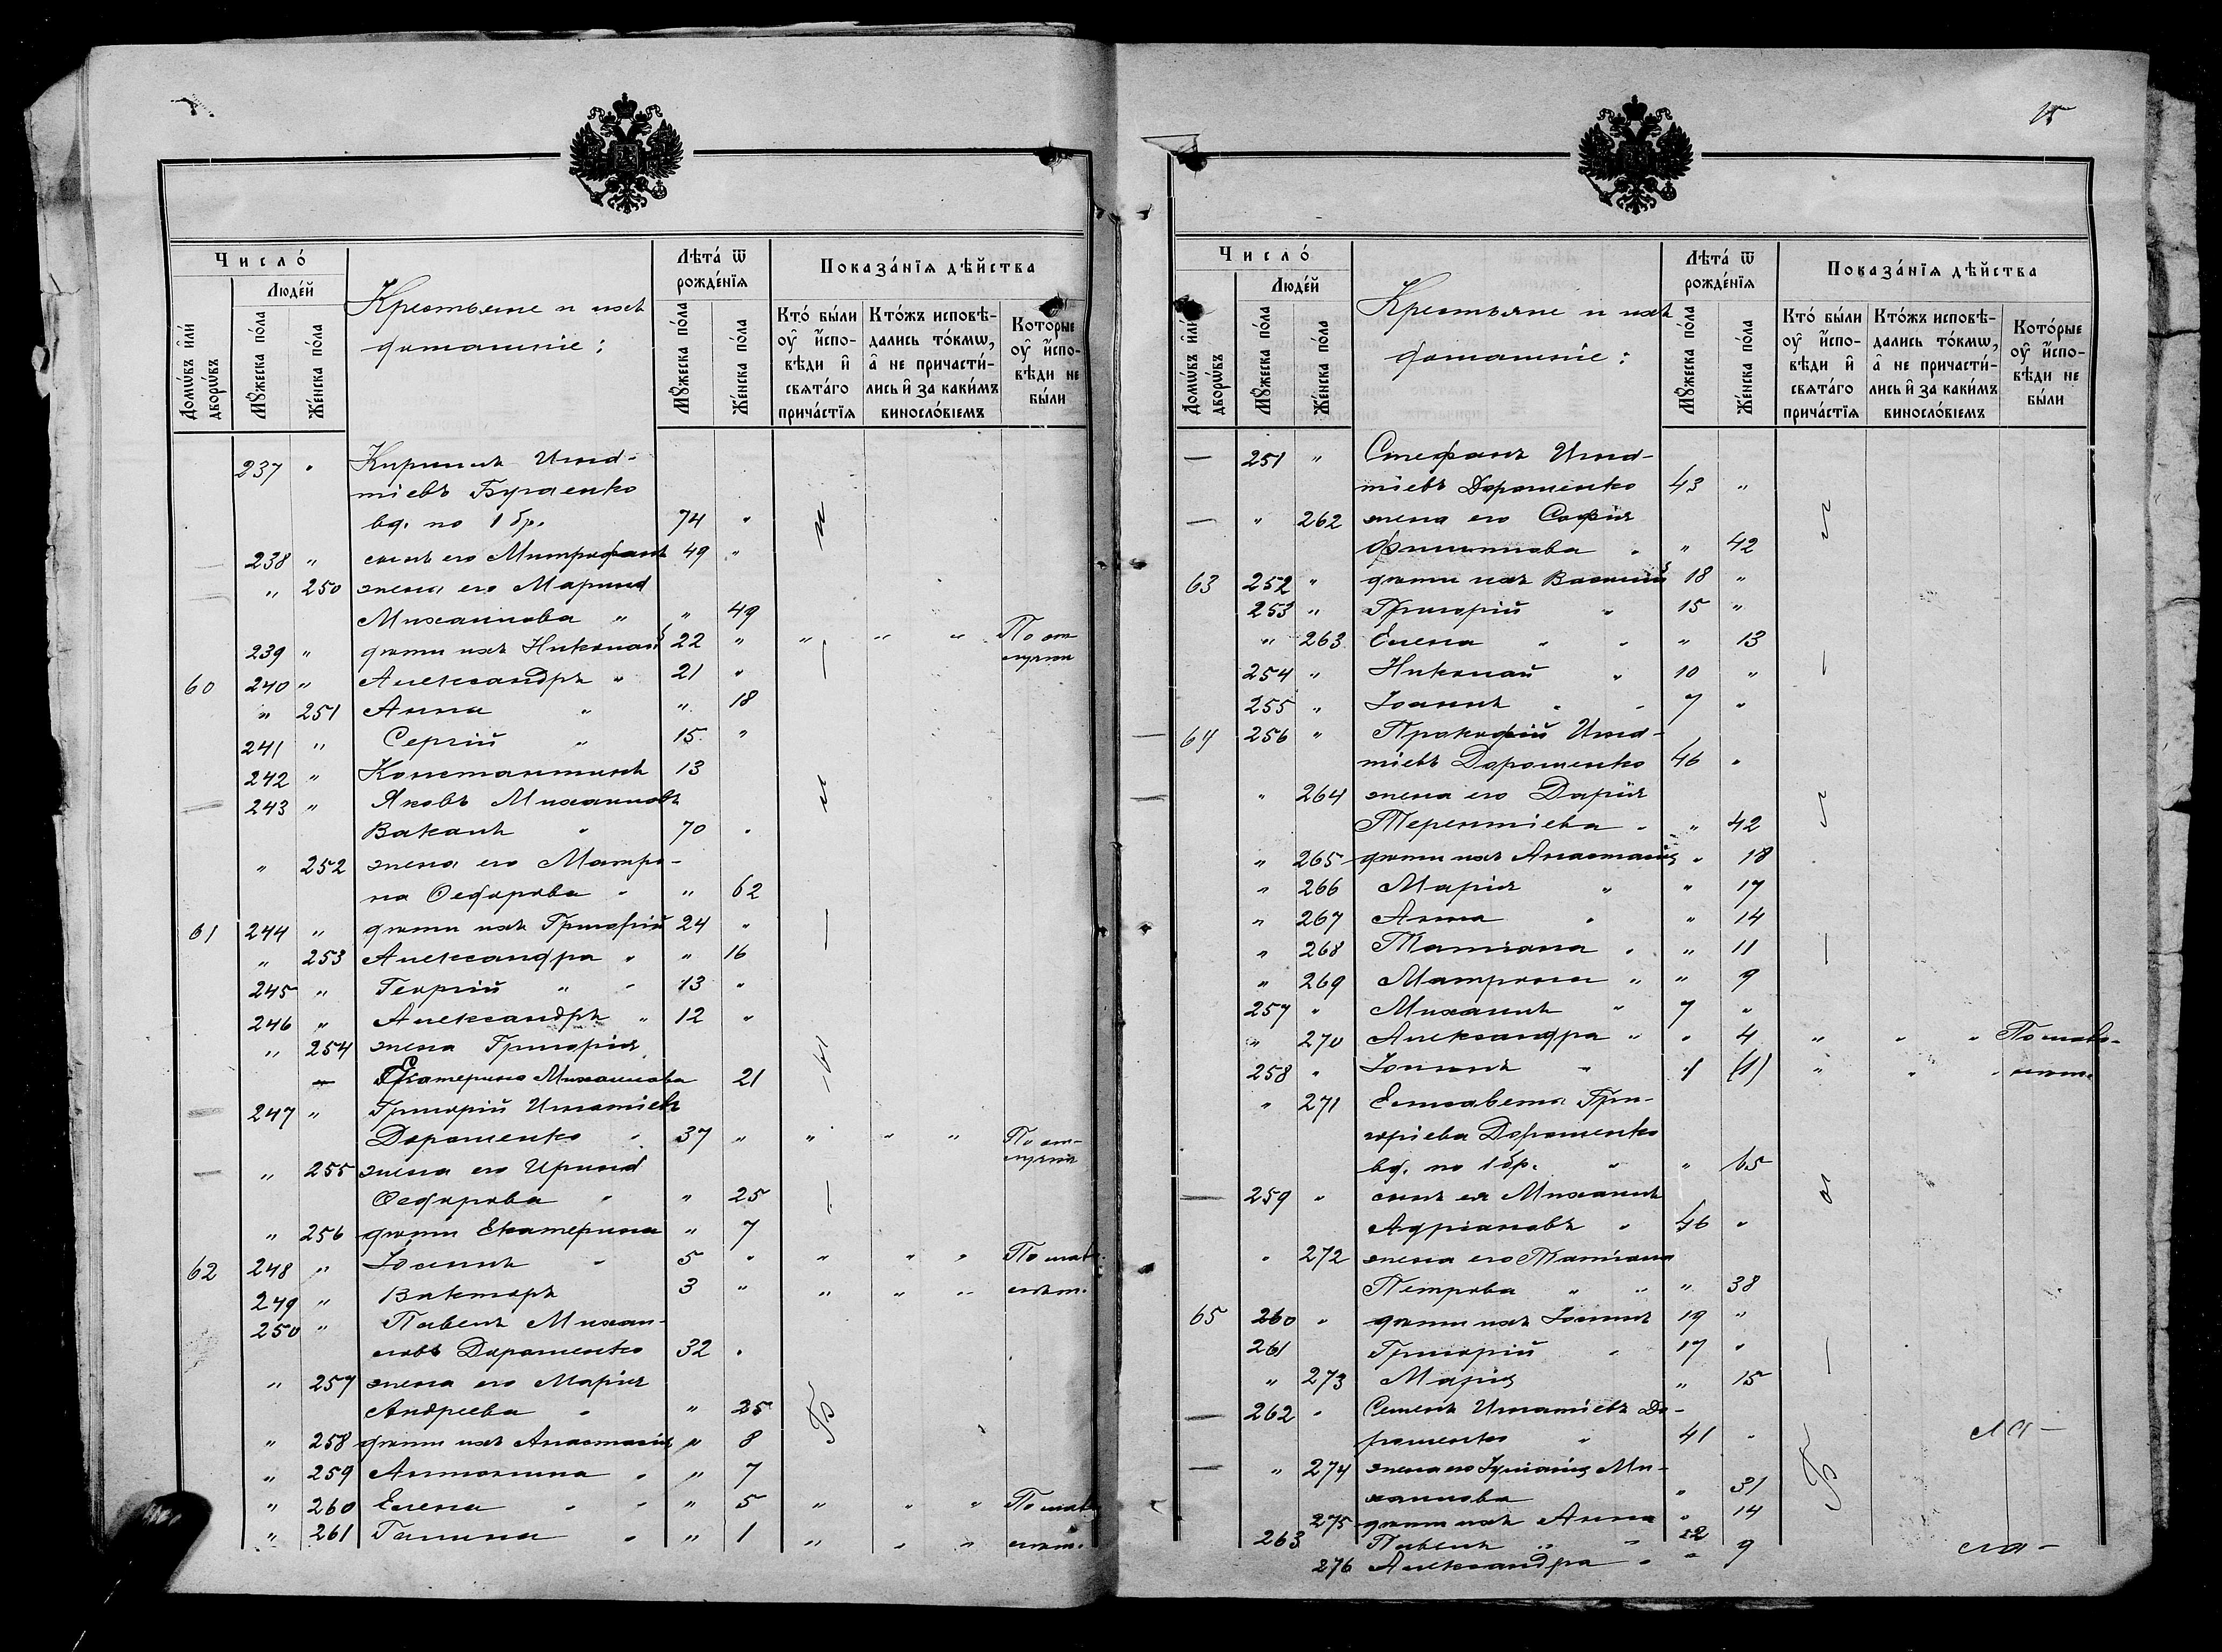 Число́
Люде́й
Домѡвъ и҆лѝ дворѡвъ
Мꙋжеска по́ла
Же́нска по́ла
Крестьяне и ихъ
домашніе:
Лѣта́ ѿ
рожде́нїѧ
Мꙋжеска по́ла
Же́нска по́ла
Показа́нїѧ дѣйства
Кто̀ бы́ли
ᲂу҆ и҆спо-
вѣди и҆
свѧта́го
прича́стїѧ
Кто́жъ исповѣ-
дались то́кмѡ,
а҆ не причасти́-
лись и҆ за каки́мъ
винослóвіемъ
Кото́рые
ᲂу҆ и҆спо-
вѣди не
бы́ли
237 " Кириллъ Игна-
тіевъ Бугаенко
вд. по 1 бр. 74 "
238 " сынъ его Митрофанъ 49 "
" 250 жена его Марина
Михаилова " " 49
239 " дѣти ихъ Николай 22 " " " " По от-
лучки
60 240 " Александръ " 21 "
" 251 Анна " " 18
241 " Сергій " 15 "
242 " Константинъ 13
243 " Яковъ Михаиловъ
Вакаль " 70 "
" 252 жена его Матро-
на Ѳедорова " " 62
61 244 " дѣти ихъ Григорій 24 "
" 253 Александра " " 16
245 " Георгій " " 13 "
246 " Александръ " 12 "
" 254 жена Григорія
Екатерина Михаилова 21
247 " Григорій Игнатіевъ
Дорошенко " 37 " " " " По от-
лучки
" 255 жена его Ирина
Ѳедорова " " 25
" 256 дѣти Екатерина " 7
62 248 " Іоаннъ " 5 " " " " По мало-
249 " Викторъ 3 " " " " лѣт.
250 " Павелъ Михаи-
ловъ Дорошенко 32 "
" 257 жена его Марія
Андреева " " 25
" 258 дѣти ихъ Анастасія " 8
" 259 Антонина " " 7
" 260 Елена " " " 5 " " " По мало
" 261 Галина " " 1 " " " лѣт.
15
Число́
Люде́й
Домѡвъ и҆лѝ дворѡвъ
Мꙋжеска по́ла
Же́нска по́ла
Крестьяне и ихъ
домашніе:
Лѣта́ ѿ
рожде́нїѧ
Мꙋжеска по́ла
Же́нска по́ла
Показа́нїѧ дѣйства
Кто̀ бы́ли
ᲂу҆ и҆спо-
вѣди и҆
свѧта́го
прича́стїѧ
Кто́жъ исповѣ-
дались то́кмѡ,
а҆ не причасти́-
лись и҆ за каки́мъ
винослóвіемъ
Кото́рые
ᲂу҆ и҆спо-
вѣди не
бы́ли
251 " Стефанъ Игна-
тіевъ Дорошенко 43 "
" 262 жена его Софія
Филиппова " " 42
63 252 " дѣти ихъ Василій 18 "
253 " Григорій " 15 "
" 263 Елена " " " 13
254 " Николай " 10 "
255 " Іоаннъ " " 7 "
64 256 " Прокофій Игна-
тіевъ Дорошенко 46 "
" 264 жена его Дарія
Терентіева " " 42
" 265 дѣти ихъ Анастасія " 18
" 266 Марія " " 17
" 267 Анна " " 14
" 268 Татіана " " 11
" 269 Матрона " " 9
257 " Михаилъ " 7 "
" 270 Александра " " 4 " " " По мало-
258 " Іоаннъ " 1 (1) " " " лѣт.
" 271 Елисавета Гри-
горіева Дорошенко
вд. по 1 бр. " " 65
259 " сынъ ея Михаилъ
Адріановъ " 46 "
" 272 жена его Татіана
Петрова " " " 38
65 260 " дѣти ихъ Іоаннъ 19 "
261 Григорій " 17 "
" 273 Марія " 15
262 " Семенъ Игнатіевъ До-
рошенко " 41 "
" 274 жена его Іуліанія Ми-
хаилова " 31
275 дѣти ихъ Анна " 14
263 Павелъ " " 12
276 Александра " " 9